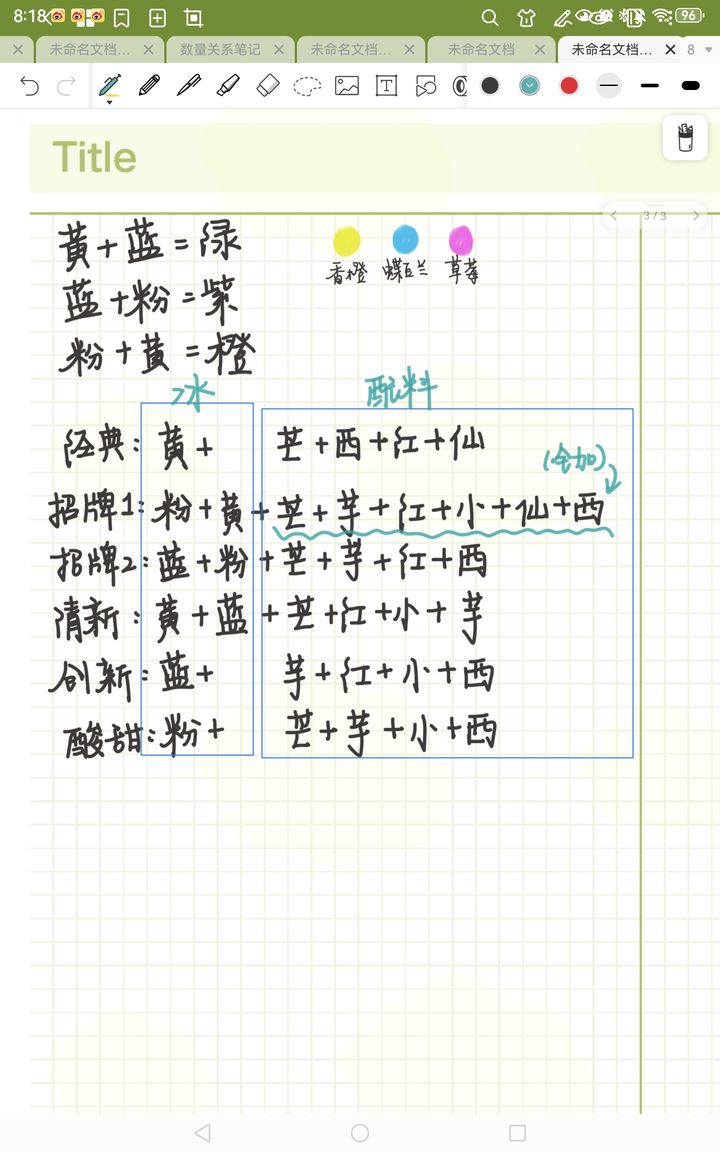 8:18
96
未命名文档...
数量关系笔记
未命名文档...
未命名文档
未命名文档...
8
Title
3/3
黄+蓝=绿
蓝+粉=紫
粉+黄=橙
香橙 蝶豆兰 草莓
冰 配料
经典:黄+ 芒+西+红+仙
(全加)
招牌1:粉+黄+芒+芋+红+小+仙+西
招牌2:蓝+粉+芒+芋+红+西
清新:黄+蓝+芒+红+小+芋
创新:蓝+ 芋+红+小+西
酸甜:粉+ 芒+芋+小+西